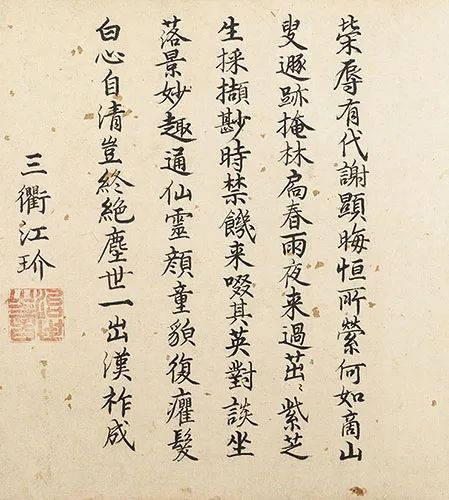 榮辱有代謝顯晦恒所縈何如商山
叟遯跡掩林扃春雨夜来過茁〻紫芝
生採擷尠時禁饑来啜其英對談坐
落景妙趣通仙靈顔童貌復癯髮
白心自清豈終絶塵世一出漢祚成
三衢江玠